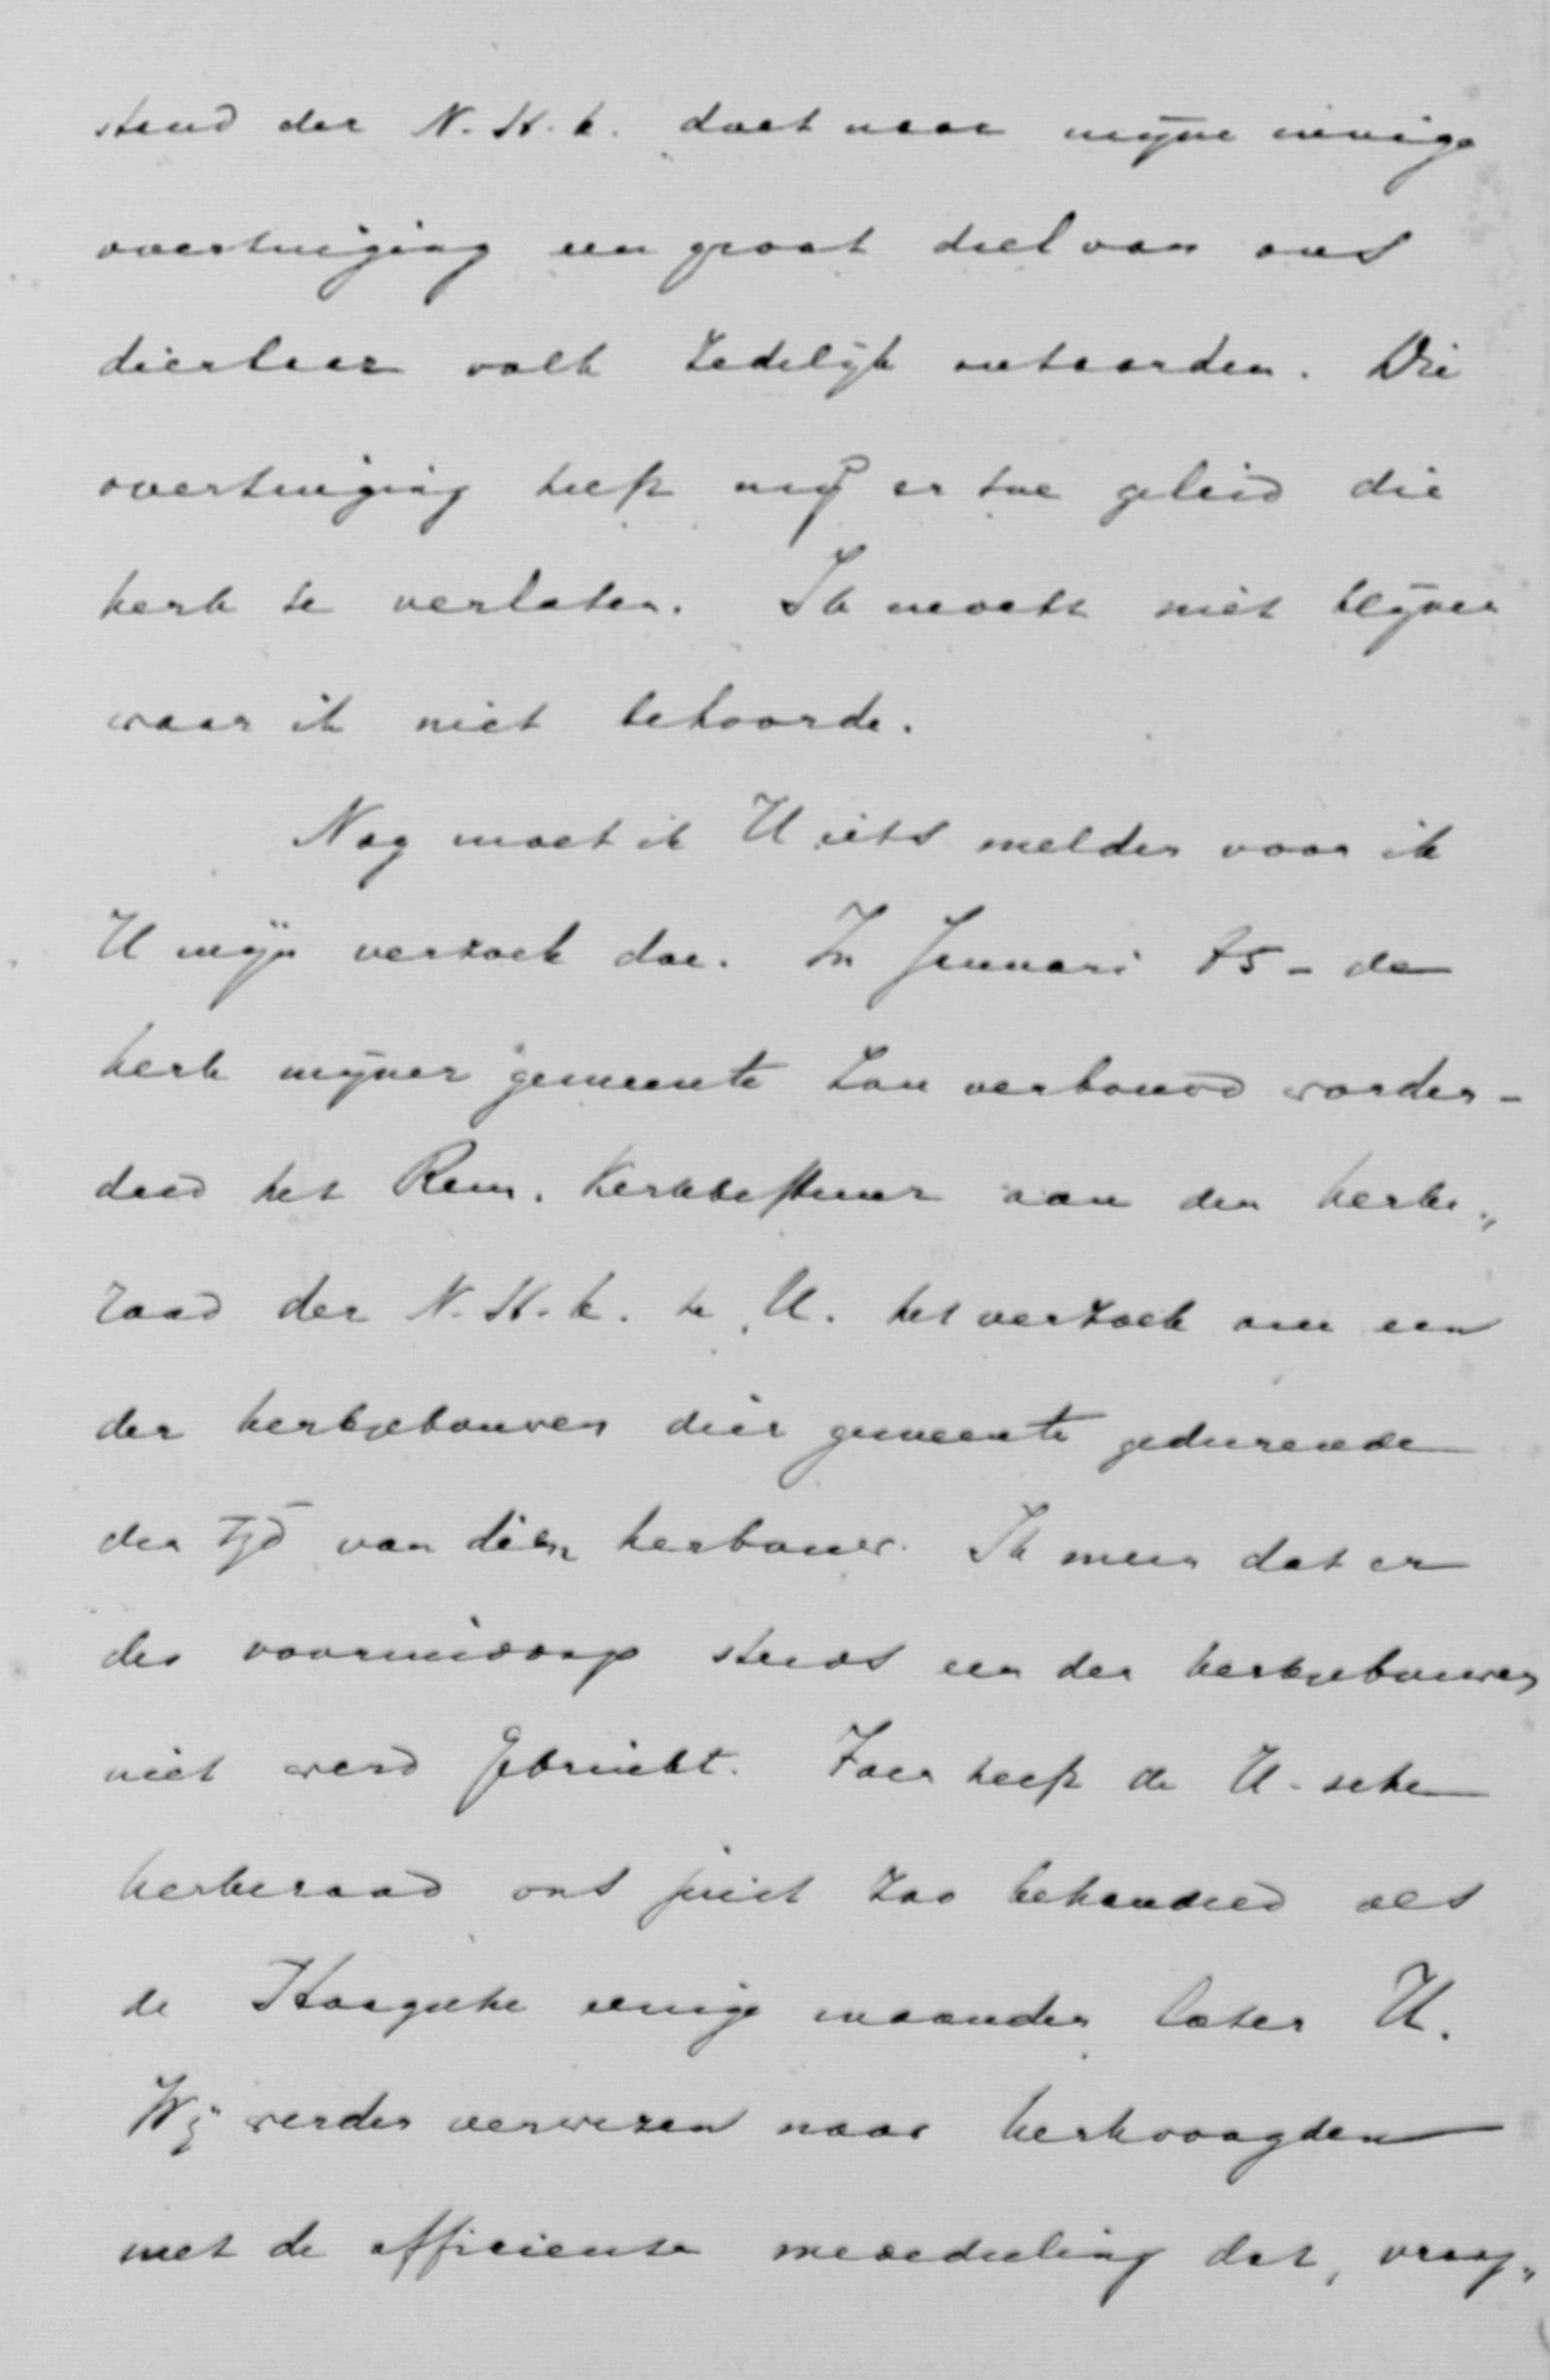 stand der N. H. k. doet naar mijne innige
overtuiging een groot deel van ons
dierbaar volk zedelijk ontaarden. Die
overtuiging heeft mij er toe geleid die
kerk te verlaten. Ik mocht niet blijven
waar ik niet behoorde.
Nog moet ik U iets melden voor ik
U mijn verzoek doe. In Januari 85 - de
kerk mijner gemeente zou verbouwd worden -
deed het Rem. Kerkbestuur aan den kerke„
raad der N. H. k. te U. het verzoek om een
der kerkgebouwen dier gemeente gedurende
den tijd van dien herbouw. Ik meen dat er
des voormiddags steeds een der kerkgebouwen
niet werd gebruikt. Toen heeft de U-sche
kerkeraad ons juist zoo behandeld als
de Haagsche eenige maanden later U.
Wij werden verwezen naar kerkvoogden
met de officieuse mededeeling dat, vroeg„